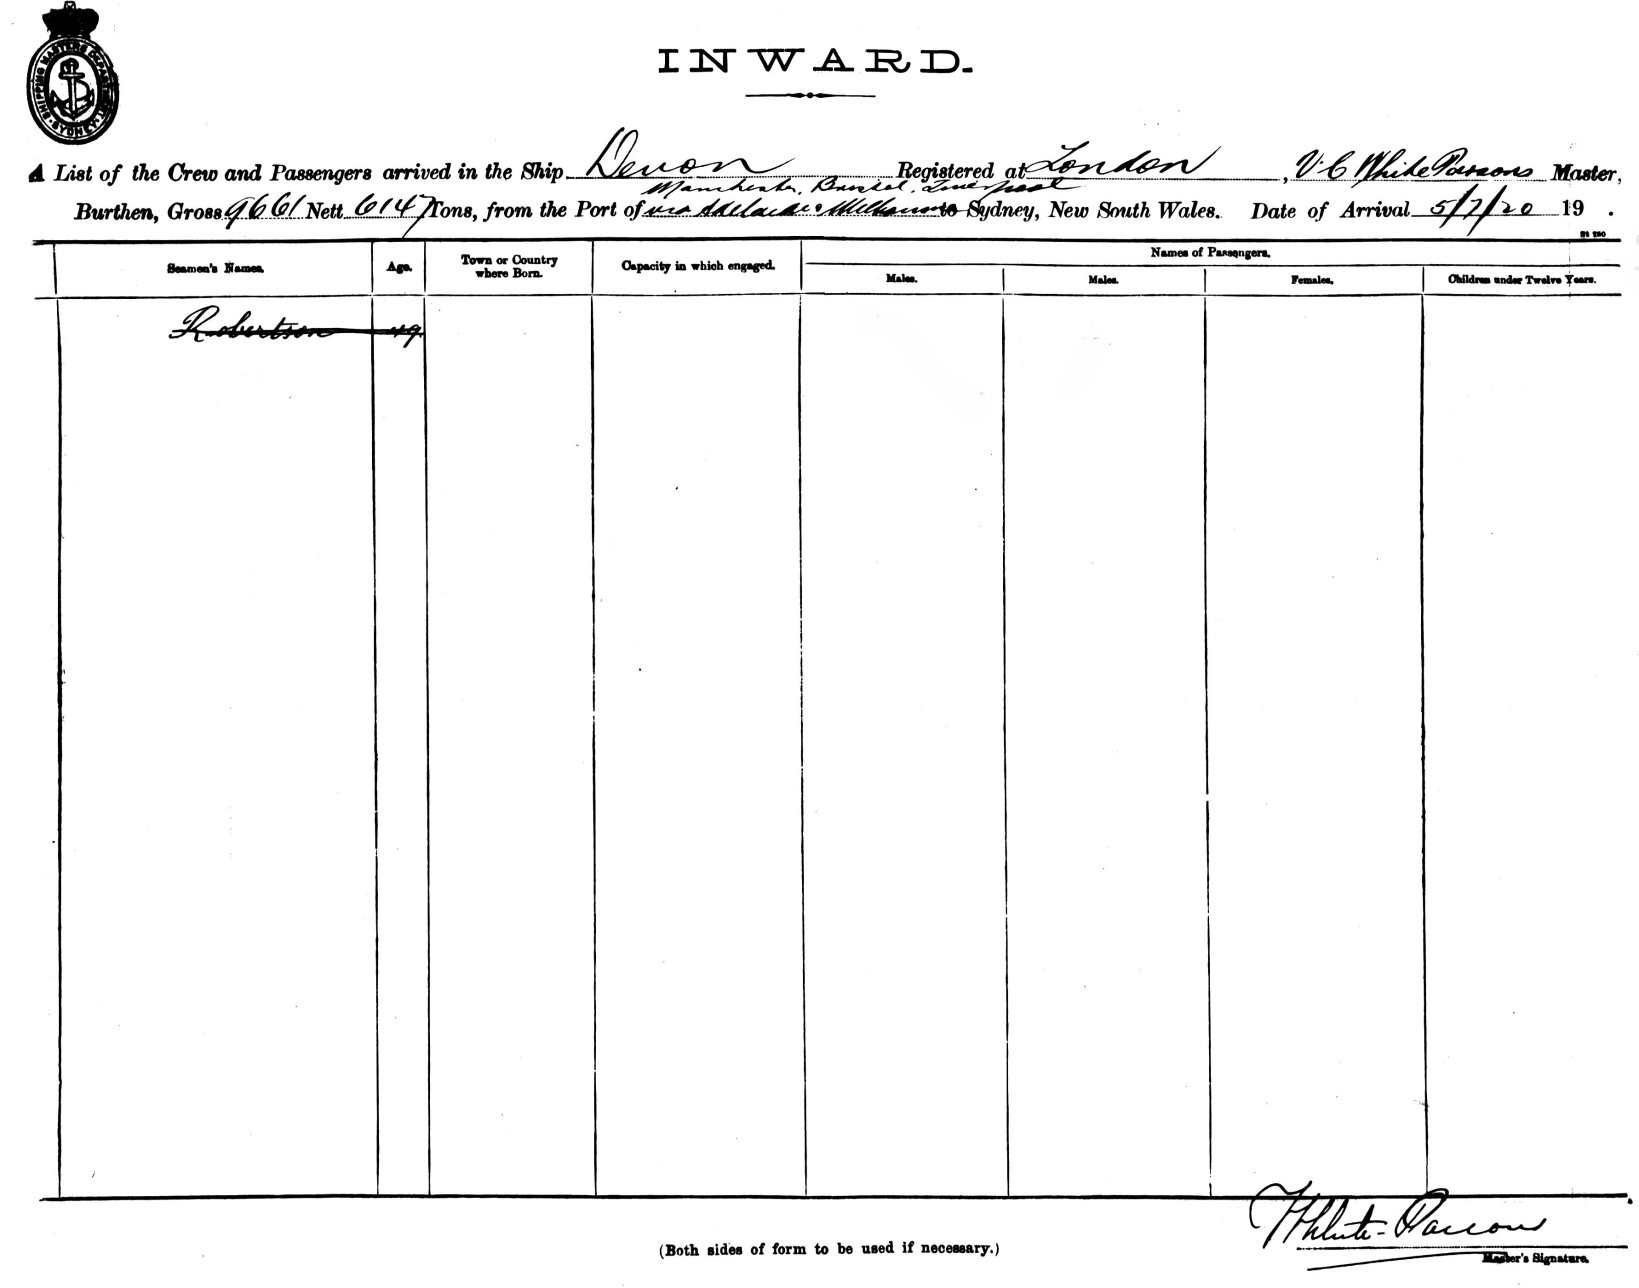 SHIPPING MASTERS DEPARTMENT
SYDNEY
INWARD.
A List of the Crew and Passengers arrived in the Ship Devon Registered at London, V. C White Parsons Master,
Manchester, Bristol, Liverpool
Burthen, Gross 9661 Nett 6147 Tons, from the Port of via Adelaide & Melbourne to Sydney, New South Wales. Date of Arrival 5/7/20 19 .
Names of Passengers.
Seamen's Names. Age. Town or Country where Born. Capacity in which engaged. Males. Males. Females. Children under Twelve Years.
Robertson 49
White-Parsons
(Both sides of form to be used if necessary.)
Master's Signature.